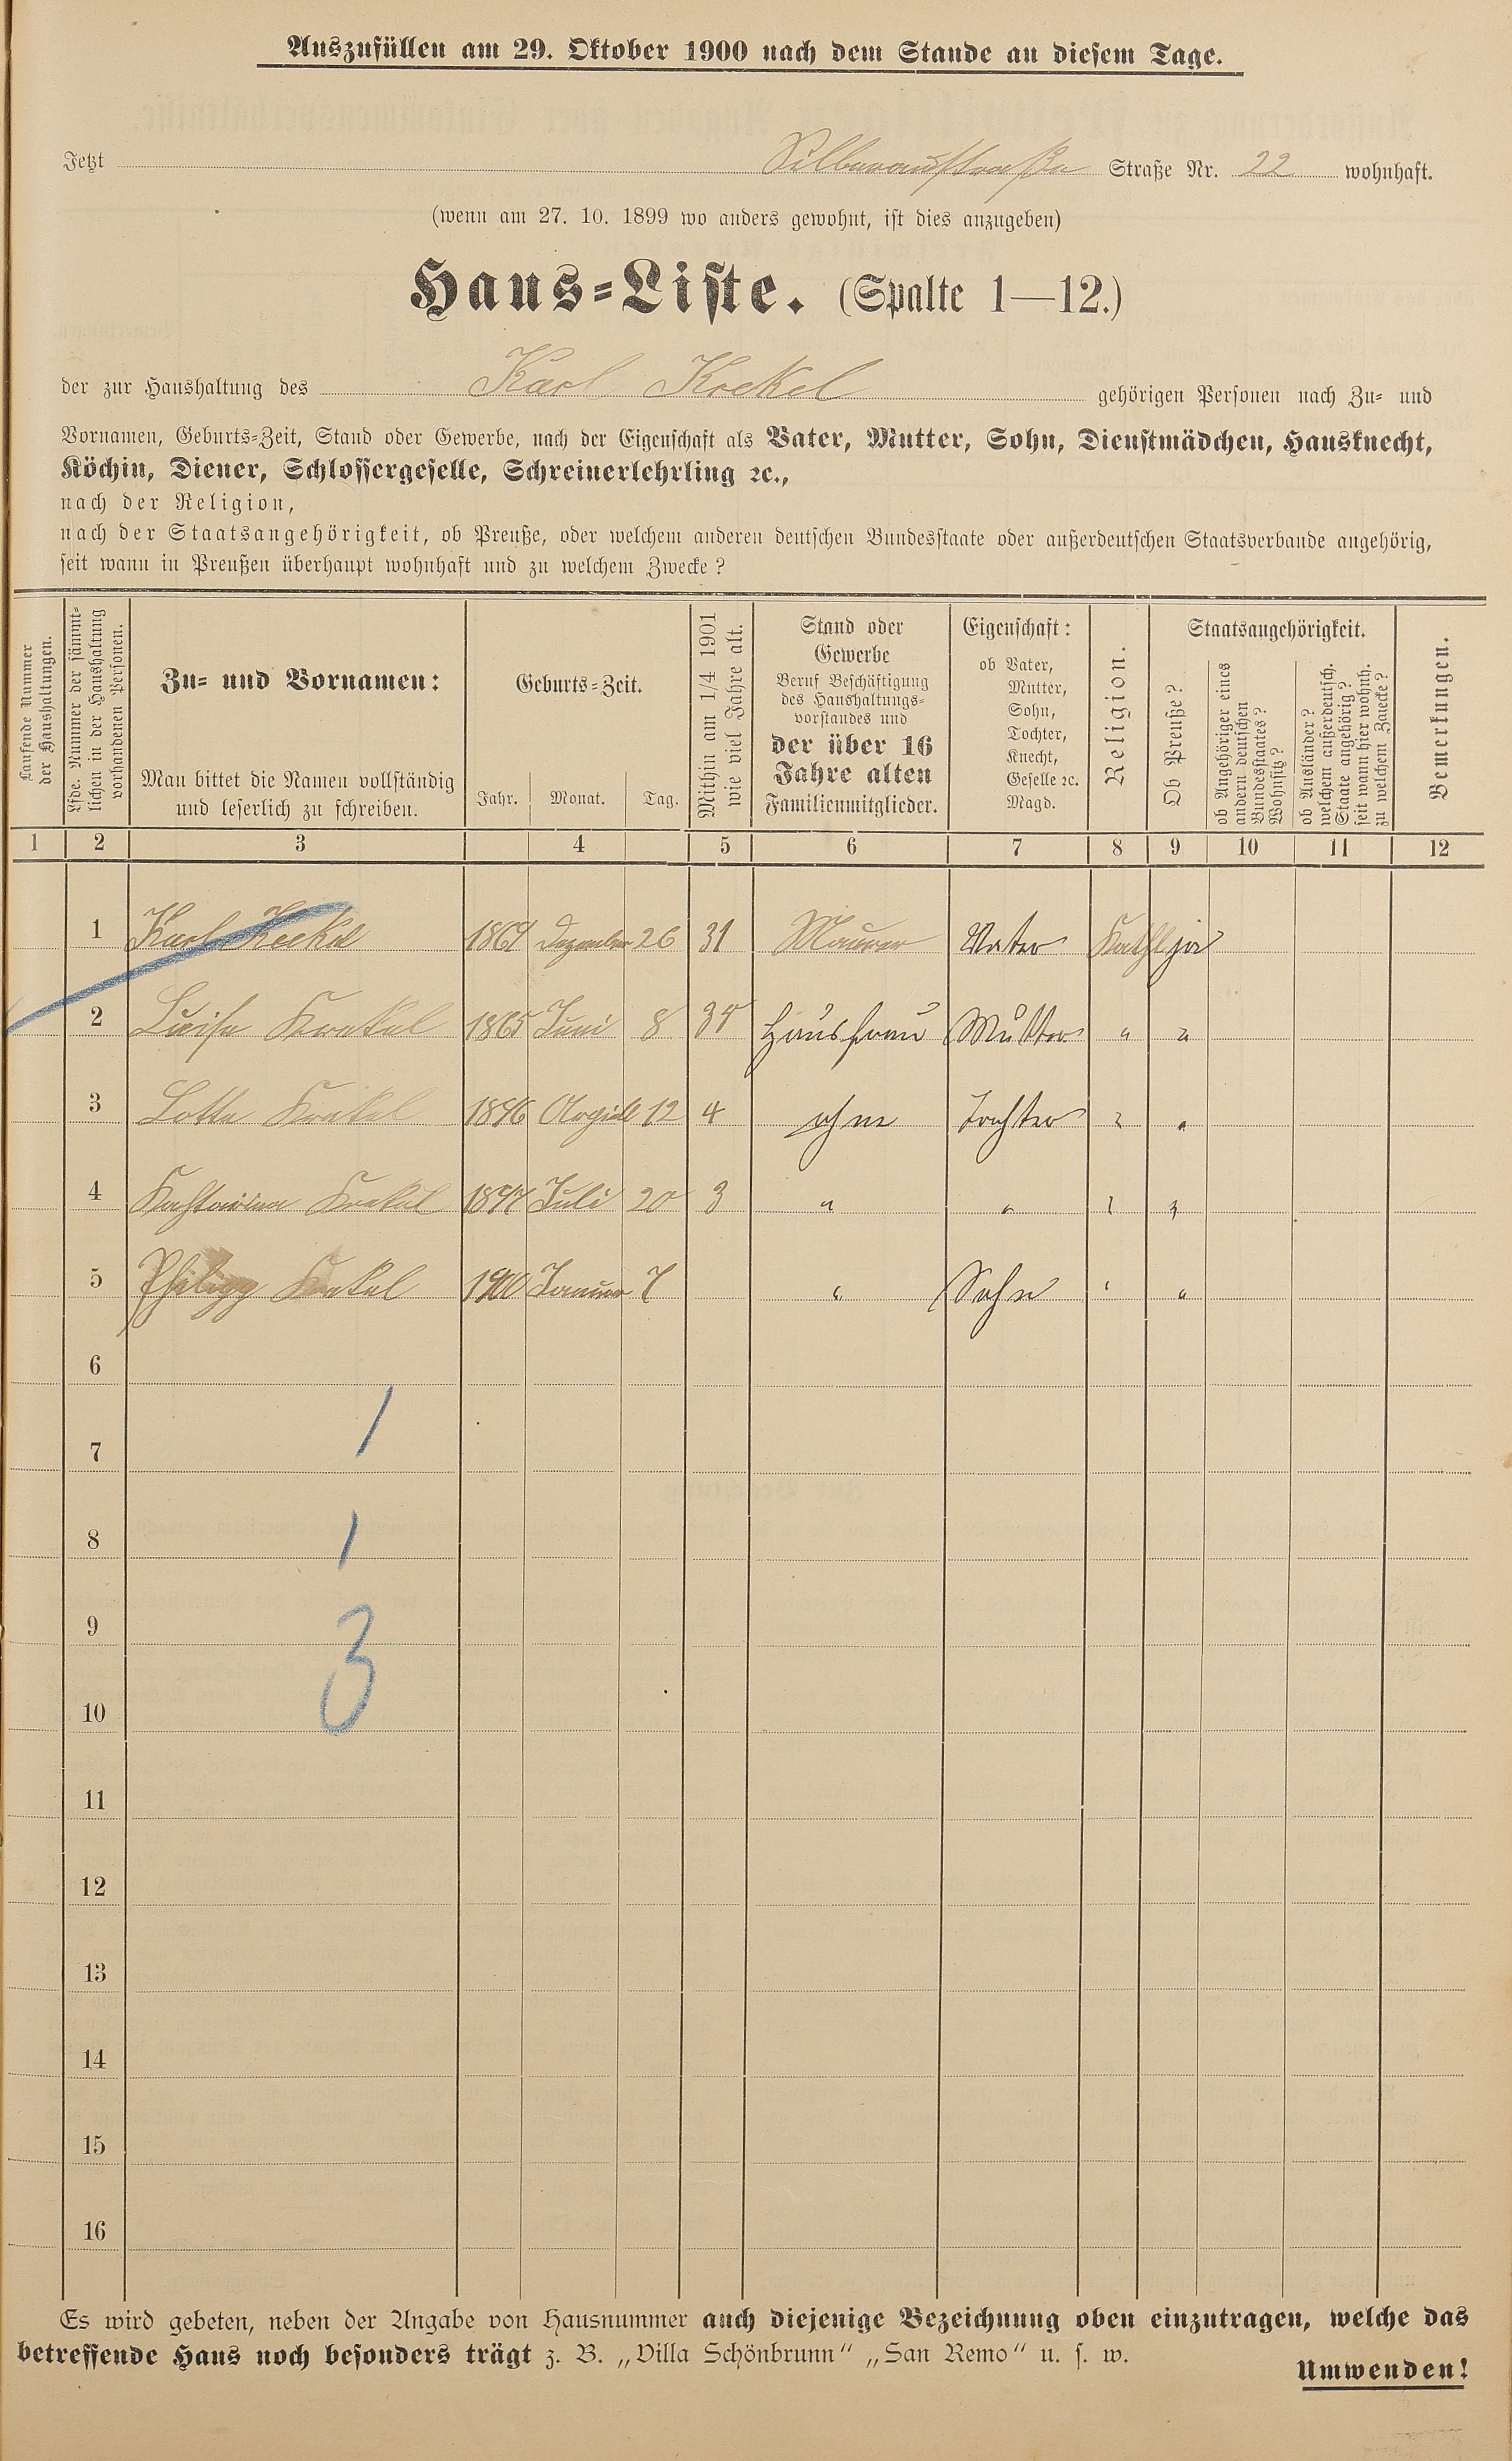 Auszufüllen am 29. Oktober 1900 nach dem Stande an diesem Tage.
Jetzt Silberaustraße Straße Nr. 22 wohnhaft.
(wenn am 27. 10. 1899 wo anders gewohnt, ist dies anzugeben)
Haus-Liste. (Spalte 1—12.)
der zur Haushaltung des Karl Krekel gehörigen Personen nach Zu- und
Vornamen, Geburts-Zeit, Stand oder Gewerbe, nach der Eigenschaft als Vater, Mutter, Sohn, Dienstmädchen, Hausknecht,
Köchin, Diener, Schlossergeselle, Schreinerlehrling ꝛc.,
nach der Religion,
nach der Staatsangehörigkeit, ob Preuße, oder welchem anderen deutschen Bundesstaate oder außerdeutschen Staatsverbande angehörig,
seit wann in Preußen überhaupt wohnhaft und zu welchem Zwecke?
Laufende Nummer
der Haushaltungen.
Lfde. Nummer der sämmt-
lichen in der Haushaltung
vorhandenen Personen.
Zu- und Vornamen:
Man bittet die Namen vollständig
und leserlich zu schreiben.
Geburts-Zeit.
Jahr. Monat. Tag.
Mithin am 1/4 1901
wie viel Jahre alt.
Stand oder
Gewerbe
Beruf Beschäftigung
des Haushaltungs-
vorstandes und
der über 16
Jahre alten
Familienmitglieder.
Eigenschaft:
ob Vater,
Mutter,
Sohn,
Tochter,
Knecht,
Geselle ꝛc.
Magd.
Religion.
Staatsangehörigkeit.
Ob Preuße?
ob Angehöriger eines
andern deutschen
Bundesstaates?
Wohnsitz?
ob Ausländer?
welchem außerdeutsch.
Staate angehörig?
seit wann hier wohnh.
zu welchem Zwecke?
Bemerkungen.
1 2 3 4 5 6 7 8 9 10 11 12
1 Karl Krekel 1869 Dezember 26 31 Maurer Vater Kathl ja
2 Luise Krekel 1865 Juni 8 35 Hausfrau Mutter " "
3 Lotte Krekel 1896 April 12 4 ohne Tochter " "
4 Krekel 1897 Juli 20 3 " " " "
5 Philipp Krekel 1900 Januar 7 " Sohn " "
6
7 1
8 1
9 3
10
11
12
13
14
15
16
Es wird gebeten, neben der Angabe von Hausnummer auch diejenige Bezeichnung oben einzutragen, welche das
betreffende Haus noch besonders trägt z. B. „Villa Schönbrunn" „San Remo" u. s. w.
Umwenden!